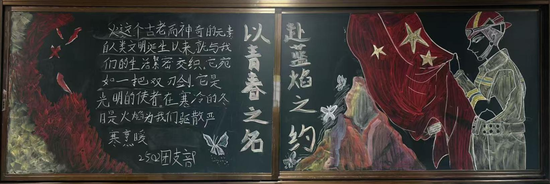 火这个古老而神奇的元素
自人类文明诞生以来,就与我
们的生活紧密交织,它宛
如一把双刃剑。它是
光明的使者在寒冷的冬
日是火焰为我们驱散严
寒熏暖
2502团支部
以青春之名
赴蓝焰之约